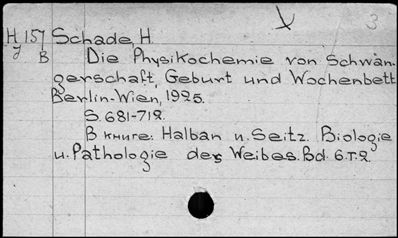 3
H 157 Schade, H.
y B Die Physikochemie von Schwan-
gerschaft, Geburt und Wochenbett
Berlin-Wien, 1925.
S. 681-712.
В книге: Halban u. Seitz. Biologie
u. Pathologie des Weibes. Bd. 6. T. 2.